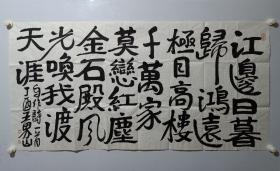 江邊日暮
歸鴻遠
極目高樓
千萬家
莫戀紅塵
金石殿風
光喚我渡
天涯
自作詩一首
丁酉